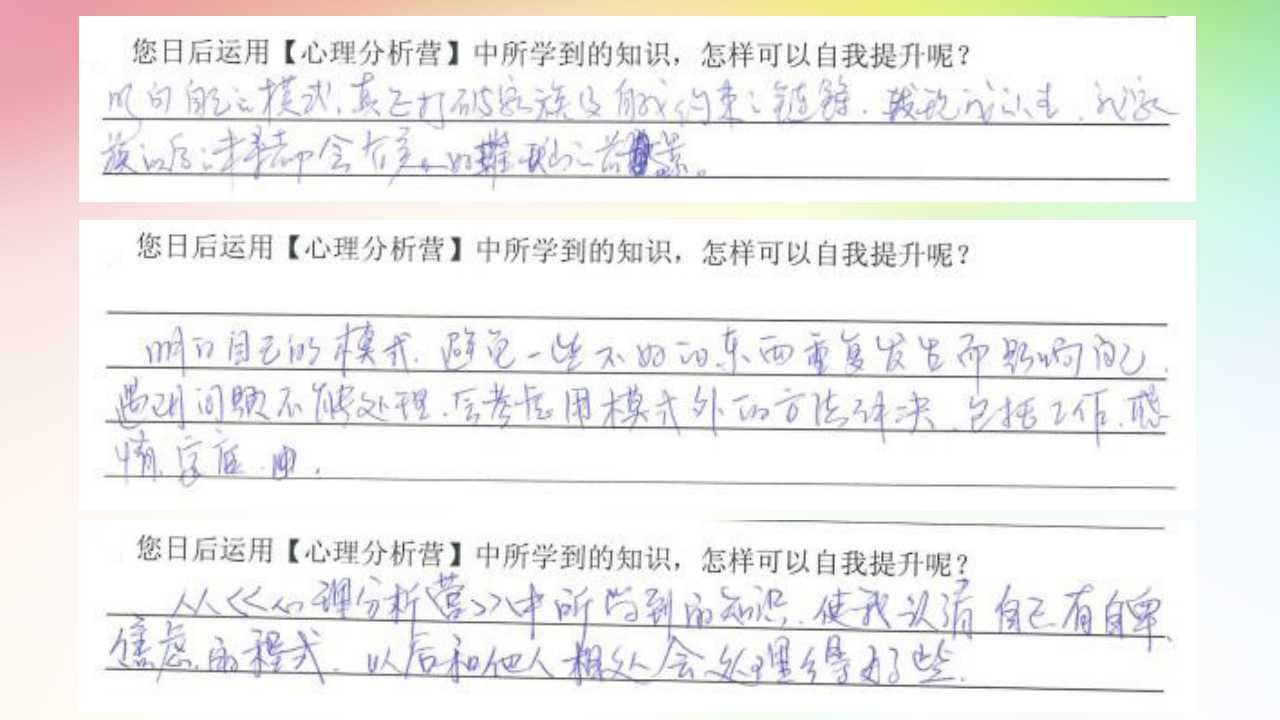 您日后运用【心理分析营】中所学到的知识，怎样可以自我提升呢？
自己模式，真正打破家族及自我约束之链锁，我
族的后都会有美好
您日后运用【心理分析营】中所学到的知识，怎样可以自我提升呢？
明白自己的模式，避免一些不好的东西重复发生而影响自己，
遇到问题不能处理，会考虑用模式外的方法解决，包括工作，感
情，家庭
您日后运用【心理分析营】中所学到的知识，怎样可以自我提升呢？
从《心理分析营》中所学到的知识，使我认清自己有自卑、
焦虑的程式，以后和他人相处会处理得好些。